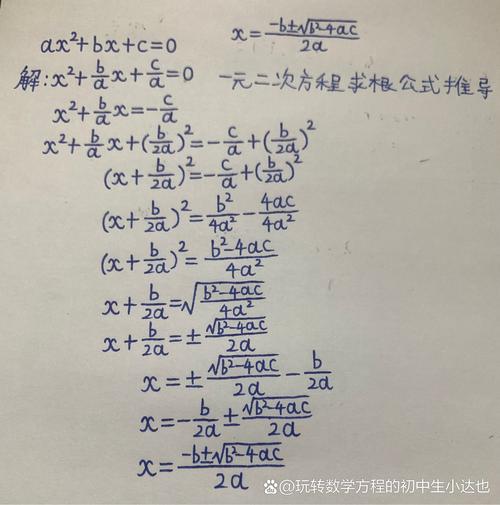 ax²+bx+c=0
x=\frac{-b±\sqrt{b²-4ac}}{2a}
解:x²+\frac{b}{a}x+\frac{c}{a}=0
一元二次方程求根公式推导
x²+\frac{b}{a}x=-\frac{c}{a}
x²+\frac{b}{a}x+(\frac{b}{2a})²=-\frac{c}{a}+(\frac{b}{2a})²
(x+\frac{b}{2a})²=-\frac{c}{a}+(\frac{b}{2a})²
(x+\frac{b}{2a})²=\frac{b²}{4a²}-\frac{4ac}{4a²}
(x+\frac{b}{2a})²=\frac{b²-4ac}{4a²}
x+\frac{b}{2a}=\sqrt{\frac{b²-4ac}{4a²}}
x+\frac{b}{2a}=±\frac{\sqrt{b²-4ac}}{2a}
x=±\frac{\sqrt{b²-4ac}}{2a}-\frac{b}{2a}
x=-\frac{b}{2a}±\frac{\sqrt{b²-4ac}}{2a}
x=\frac{-b±\sqrt{b²-4ac}}{2a}
@玩转数学方程的初中生小达也